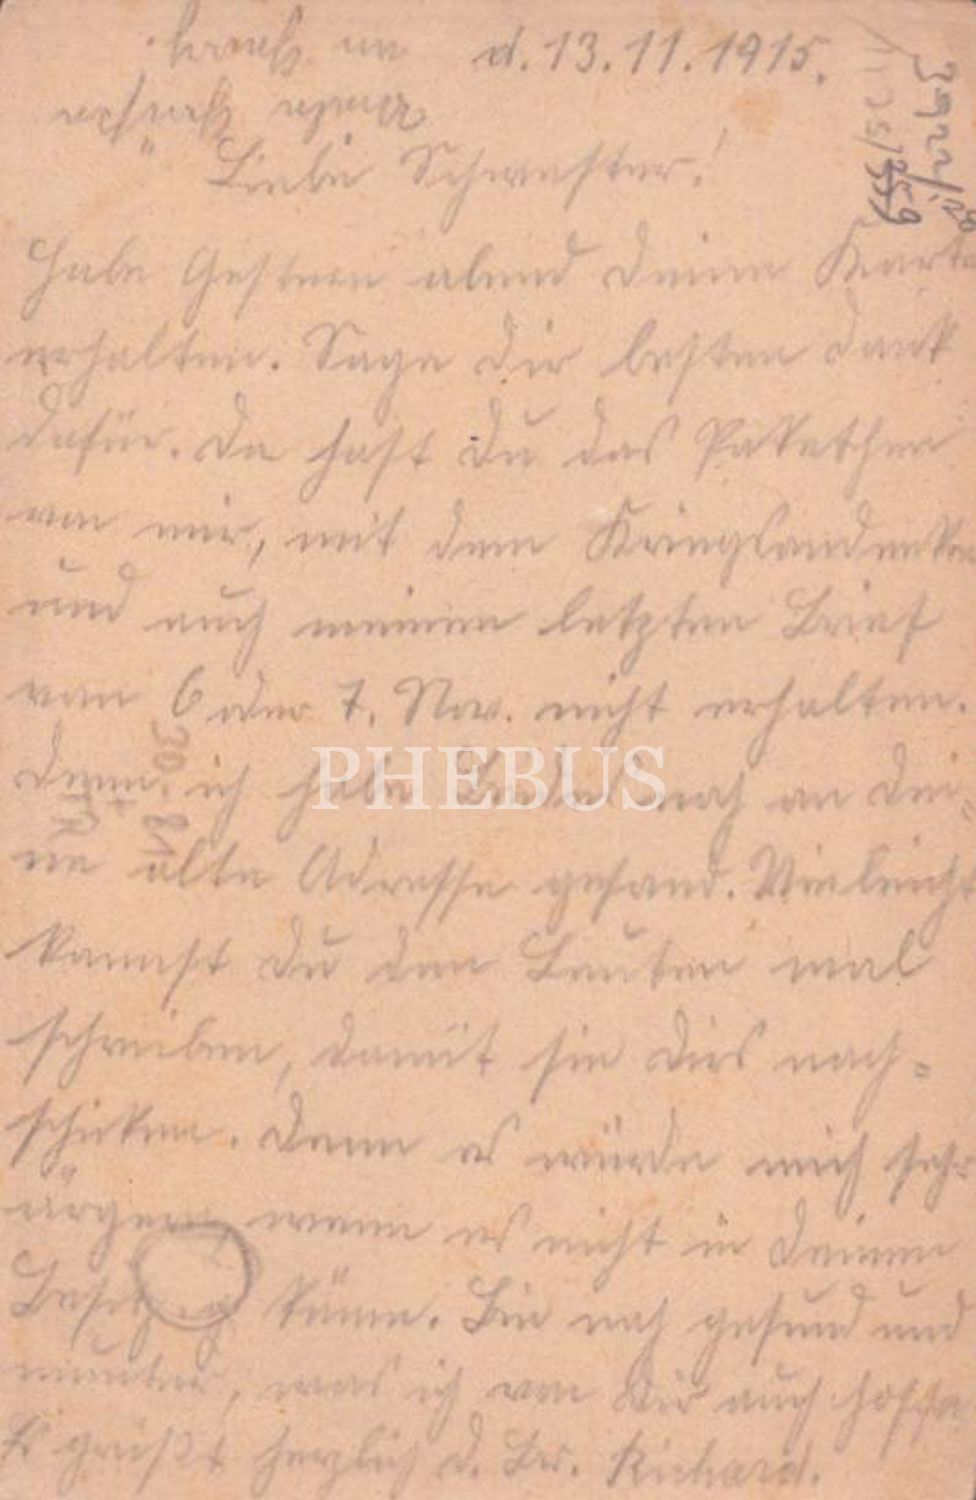 d. 13.11.1915.
Liebe Schwester!
Habe Gestern abend deine Karte
erhalten. Sage dir besten dank
dafür. Da hast Du das Paketchen
von mir, mit dem Kriegsandenken
und auch meinen letzten Brief
vom 6 oder 7. Nov. nicht erhalten.
denn ich habe beides noch an dei-
ne alte Adresse gesand. Vieleicht
kannst Du den Leuten mal
schreiben, damit sie dies nach=
schicken. denn es würde mich sehr
ärgern, wenn es nicht in deinen
Besitz käme. Bin noch gesund und
munter, was ich von Dir auch hoffe.
Es grüßt herzlich d. Br. Richard.
PHEBUS